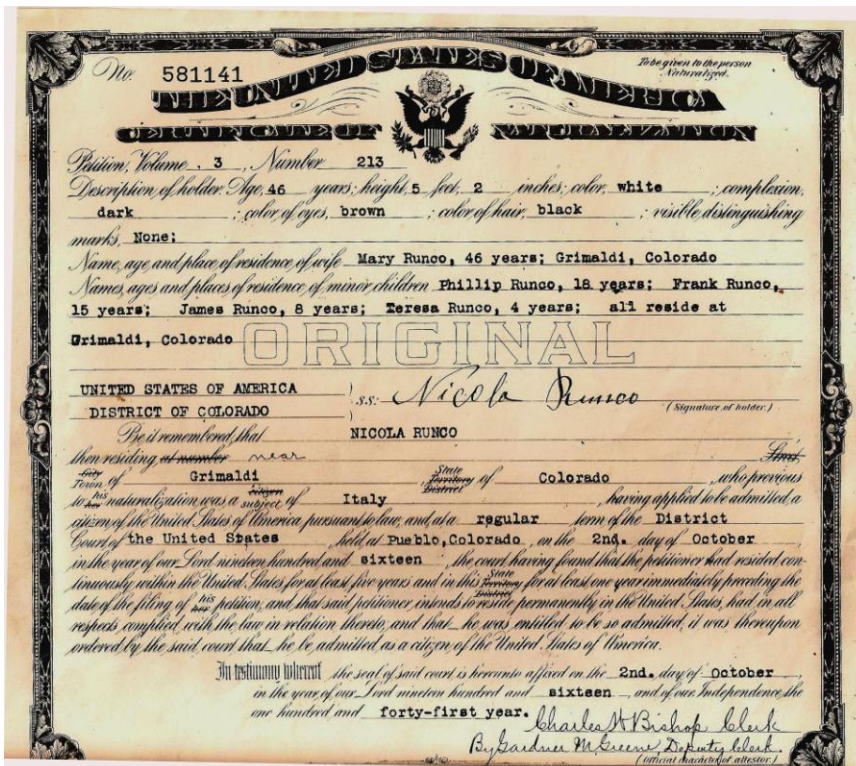 No. 581141
To be given to the person Naturalized.
THE UNITED STATES OF AMERICA
CERTIFICATE OF NATURALIZATION
Petition, Volume 3, Number 213
Description of holder: Age, 46 years; height, 5 feet, 2 inches; color, white; complexion,
dark; color of eyes, brown; color of hair, black; visible distinguishing
marks, None;
Name, age and place of residence of wife Mary Runco, 46 years; Grimaldi, Colorado
Names, ages and places of residence of minor children Phillip Runco, 18 years; Frank Runco,
15 years; James Runco, 8 years; Teresa Runco, 4 years; all reside at
Grimaldi, Colorado
ORIGINAL
UNITED STATES OF AMERICA
DISTRICT OF COLORADO
s.s: Nicola Runco
(Signature of holder.)
Be it remembered, that NICOLA RUNCO
then residing at number near Street
City Town of Grimaldi, State Territory District of Colorado, who previous
to his her naturalization, was a citizen subject of Italy, having applied to be admitted a
citizen of the United States of America pursuant to law, and, at a regular term of the District
Court of the United States held at Pueblo, Colorado, on the 2nd. day of October
in the year of our Lord nineteen hundred and sixteen, the court having found that the petitioner had resided con-
tinuously within the United States for at least five years and in this State Territory District for at least one year immediately preceding the
date of the filing of his her petition, and that said petitioner intends to reside permanently in the United States, had in all
respects complied with the law in relation thereto, and that he was entitled to be so admitted, it was thereupon
ordered by the said court that he be admitted as a citizen of the United States of America.
In testimony whereof the seal of said court is hereunto affixed on the 2nd. day of October
in the year of our Lord nineteen hundred and sixteen, and of our Independence the
one hundred and forty-first year.
Charles W Bishop Clerk
By Gardner M. Greene, Deputy Clerk.
(Official character of attestor.)